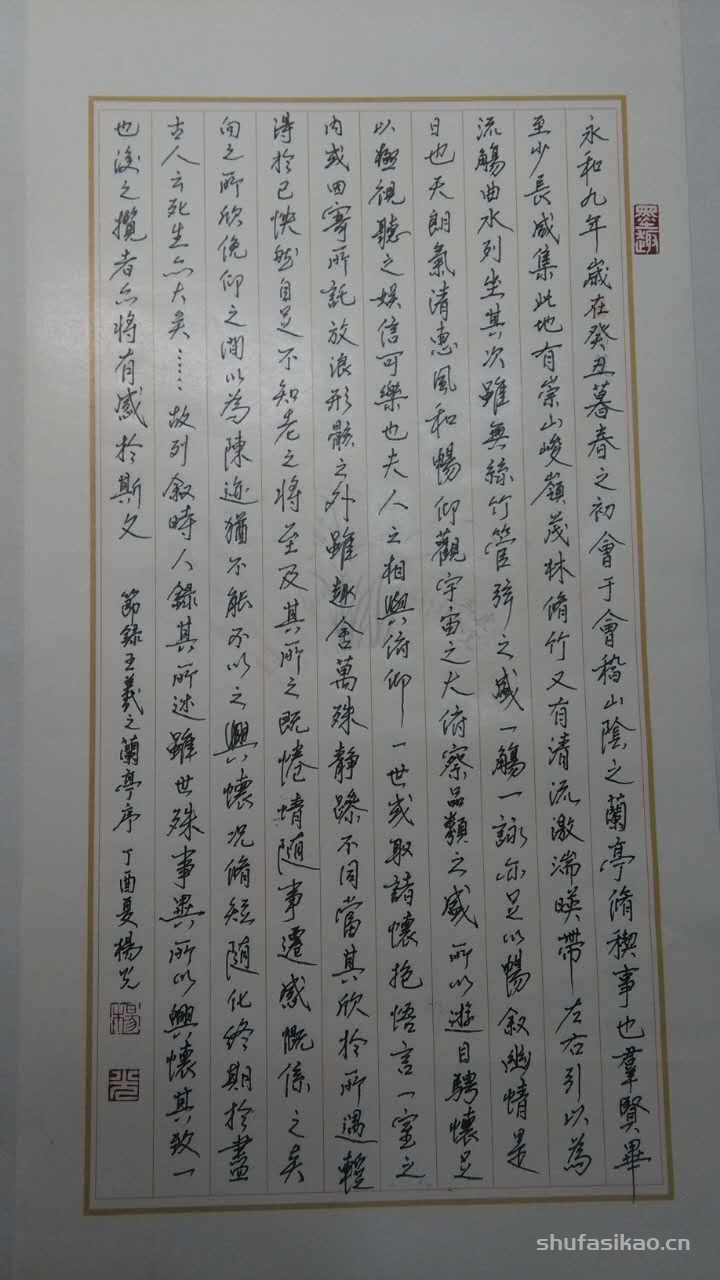 永和九年歲在癸丑暮春之初會于會稽山陰之蘭亭脩稧事也羣賢畢
至少長咸集此地有崇山峻嶺茂林脩竹又有清流激湍暎帶左右引以為
流觴曲水列坐其次雖無絲竹管弦之盛一觴一詠亦足以暢叙幽情是
日也天朗氣清惠風和暢仰觀宇宙之大俯察品類之盛所以遊目騁懷足
以極視聽之娛信可樂也夫人之相與俯仰一世或取諸懷抱悟言一室之
內或因寄所託放浪形骸之外雖趣舍萬殊靜躁不同當其欣於所遇輕
得於己快然自足不知老之將至及其所之既惓情隨事遷感慨係之矣
向之所欣俛仰之間以為陳迹猶不能不以之興懷况脩短隨化終期於盡
古人云死生亦大矣……故列叙時人錄其所述雖世殊事異所以興懷其致一
也後之攬者亦將有感於斯文 節錄王羲之蘭亭序 丁酉夏楊光
墨趣
楊
光
shufasikao.cn